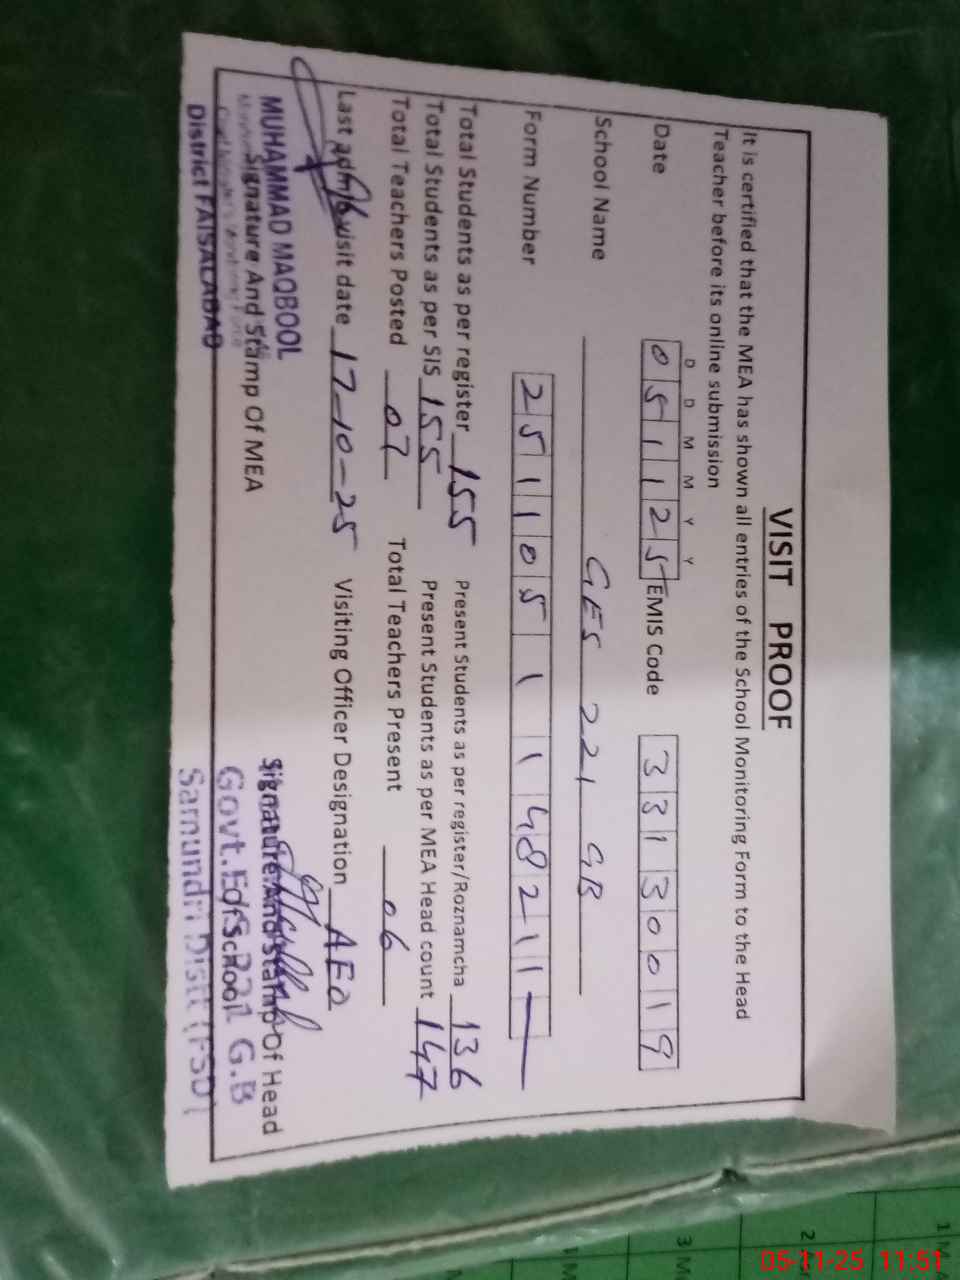 VISIT PROOF
It is certified that the MEA has shown all entries of the School Monitoring Form to the Head
Teacher before its online submission
D D M M Y Y
Date 051125 EMIS Code 33130019
School Name GES 221 GB
Form Number 25110511148211
Total Students as per register 155 Present Students as per register/Roznamcha 136
Total Students as per SIS 155 Present Students as per MEA Head count 147
Total Teachers Posted 07 Total Teachers Present 06
Last admin visit date 17-10-25 Visiting Officer Designation AEO
MUHAMMAD MAQBOOL
Signature And Stamp Of MEA Signature And Stamp Of Head
District FAISALABAD
Govt. School 221 G.B
Samundri Distt (FSD)
1 M
2
3 M
1 M
05-11-25 11:51